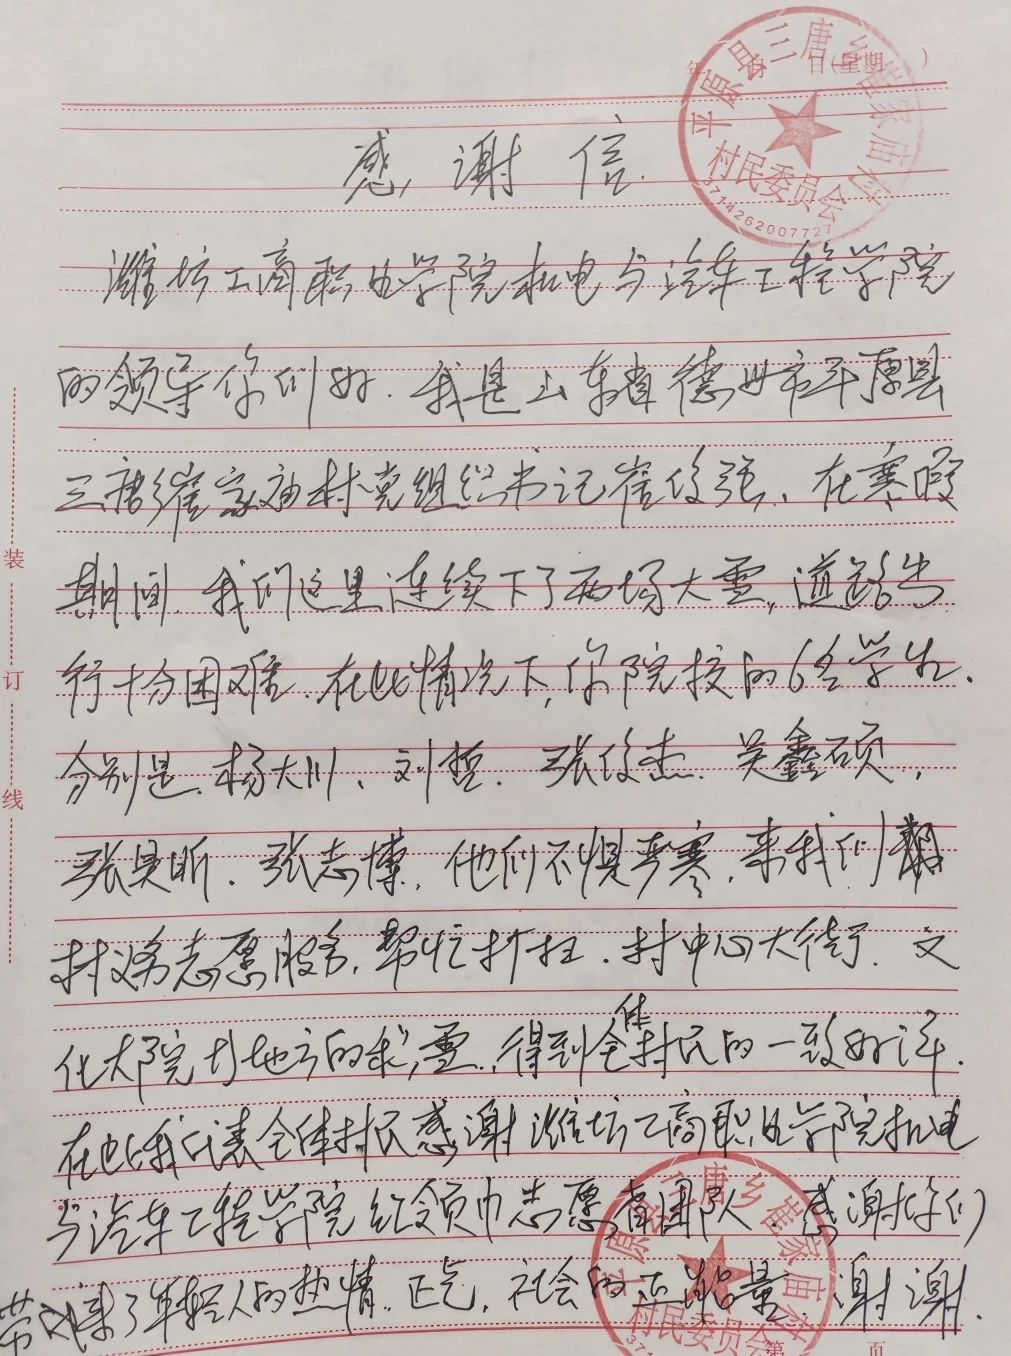 年 月 日(星期 )
平原县三唐乡崔家庙村
村民委员会
3714262007727
感谢信
潍坊工商职业学院机电与汽车工程学院
的领导你们好.我是山东省德州市平原县
三唐乡崔家庙村党组织书记崔俊强、在寒假
期间.我们这里连续下了两场大雪,道路出
行十分困难.在此情况下,你院校的6名学生、
分别是、杨大川、刘哲、张俊杰、吴鑫硕,
张昊昕、张志博,他们不惧严寒,来我们
村义务志愿服务,帮忙打扫.村中心大街、文
化大院 地方的积雪,得到全体村民的一致好评.
在此我代表全体村民感谢潍坊工商职业学院机电
与汽车工程学院红领巾志愿者团队、感谢你们
带来了年轻人的热情.正气,社会的正能量.谢谢.
平原县三唐乡崔家庙村
村民委员会
第 页
装
订
线